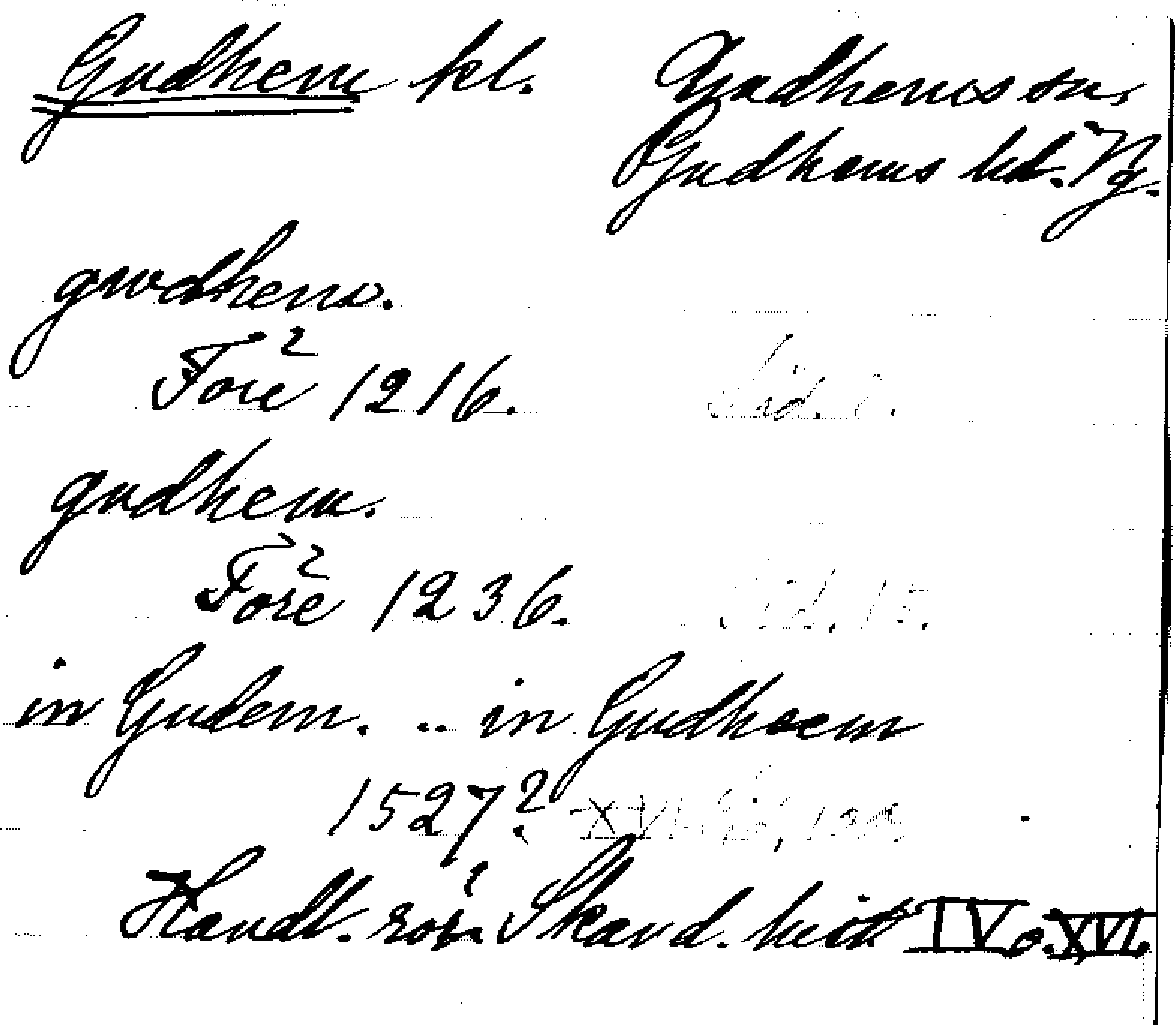 Gudhem kl. Gudhems sn,
Gudhems hd. Vg.
gwdhem.
Före 1216. Sid.
gudhem.
Före 1236. Sid. 15.
in Gudem. .. in Gudhoem
1527? XVI. Sid,
Handl. rör. Skand. hist IV o. XVI.